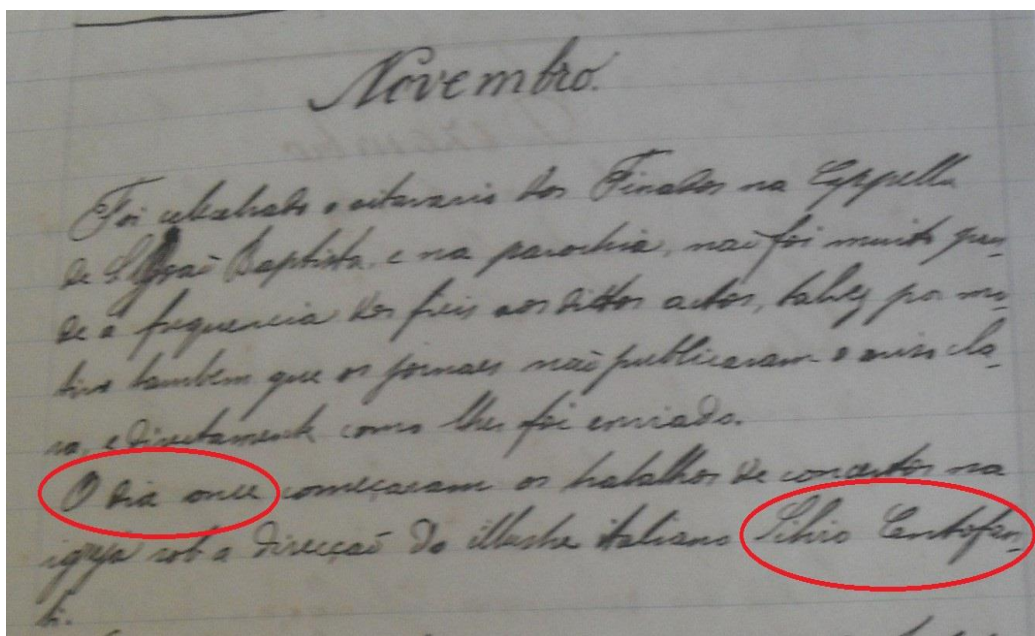 Novembro.
Foi celebrado o oitavario dos Finados na Cappella
de S. João Baptista, e na parochia, naõ foi muito gran-
de a frequencia dos fieis aos dittos actos, talvez por mo-
tivo tambem que os jornaes naõ publicaram o aviso cla-
ro, e directamente como lhes foi enviado.
O dia once começaram os trabalhos de concertos na
igreja sob a direcçaõ do illustre italiano Silvio Centofan-
ti.